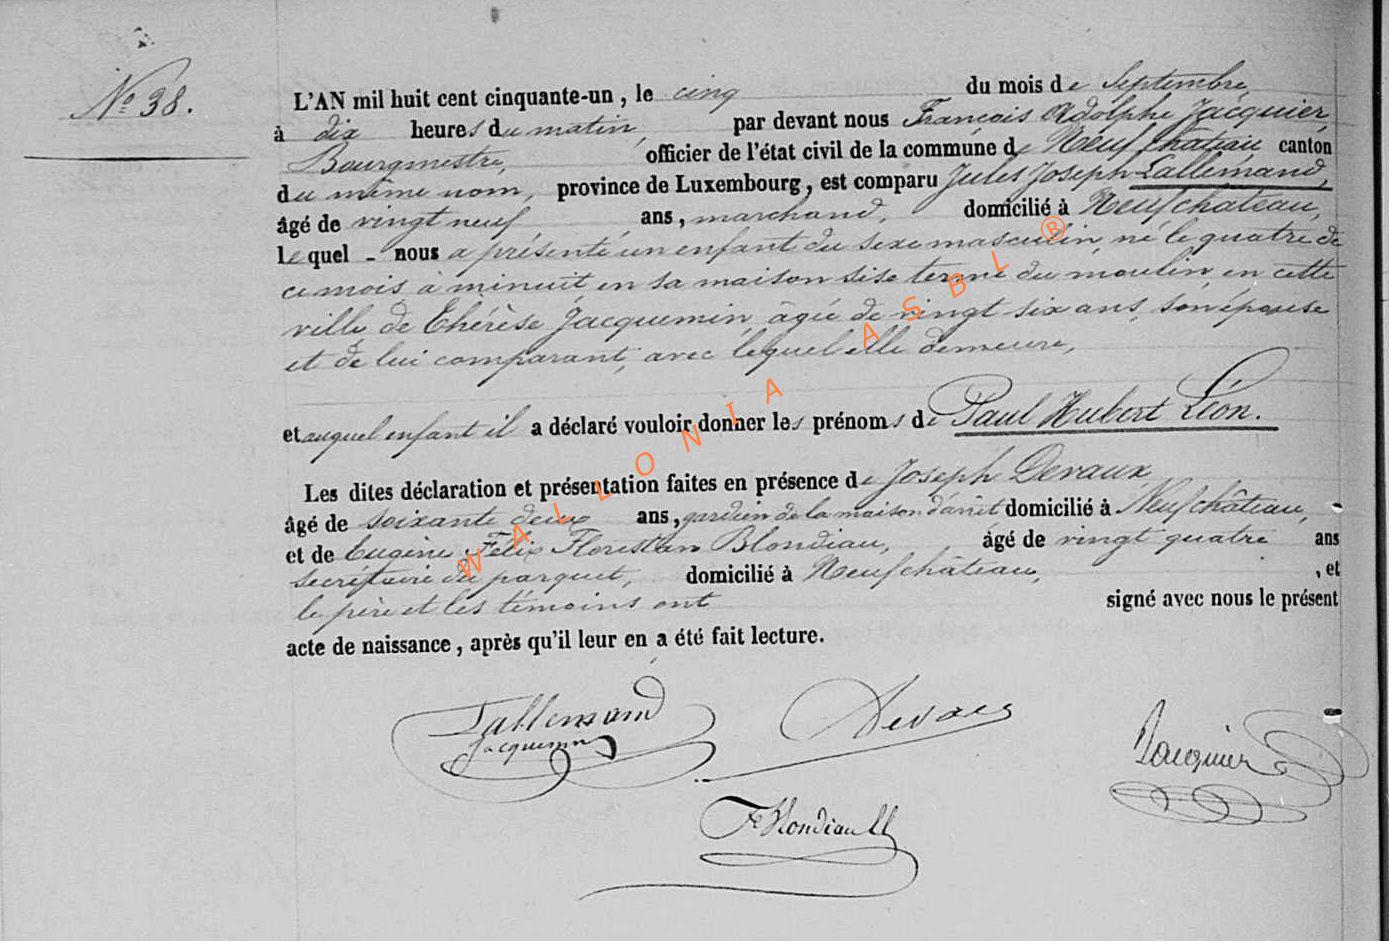 N° 38.
L'AN mil huit cent cinquante-un, le cinq du mois de Septembre,
à dix heures du matin, par devant nous François Adolphe Jacquier,
Bourgmestre, officier de l'état civil de la commune de Neufchateau canton
du même nom, province de Luxembourg, est comparu Jules Joseph Lallemand,
âgé de vingt neuf ans, marchand, domicilié à Neufchateau,
lequel - nous a présenté un enfant du sexe masculin, né le quatre de
ce mois à minuit en sa maison sise terme du moulin, en cette
ville de Thérèse Jacquemin, âgée de vingt six ans, son épouse
et de lui comparant, avec lequel elle demeure,
et auquel enfant il a déclaré vouloir donner les prénoms de Paul Hubert Léon.
Les dites déclaration et présentation faites en présence de Joseph Devaux
âgé de soixante deux ans, gardien de la maison d'arrêt domicilié à Neufchâteau,
et de Eugène Félix Florestan Blondiau, âgé de vingt quatre ans
secrétaire du parquet, domicilié à Neufchâteau, , et
le père et les témoins ont signé avec nous le présent
acte de naissance, après qu'il leur en a été fait lecture.
Lallemand Devaes
Jacquemin Jacquier
WALLONIA ASBL ®